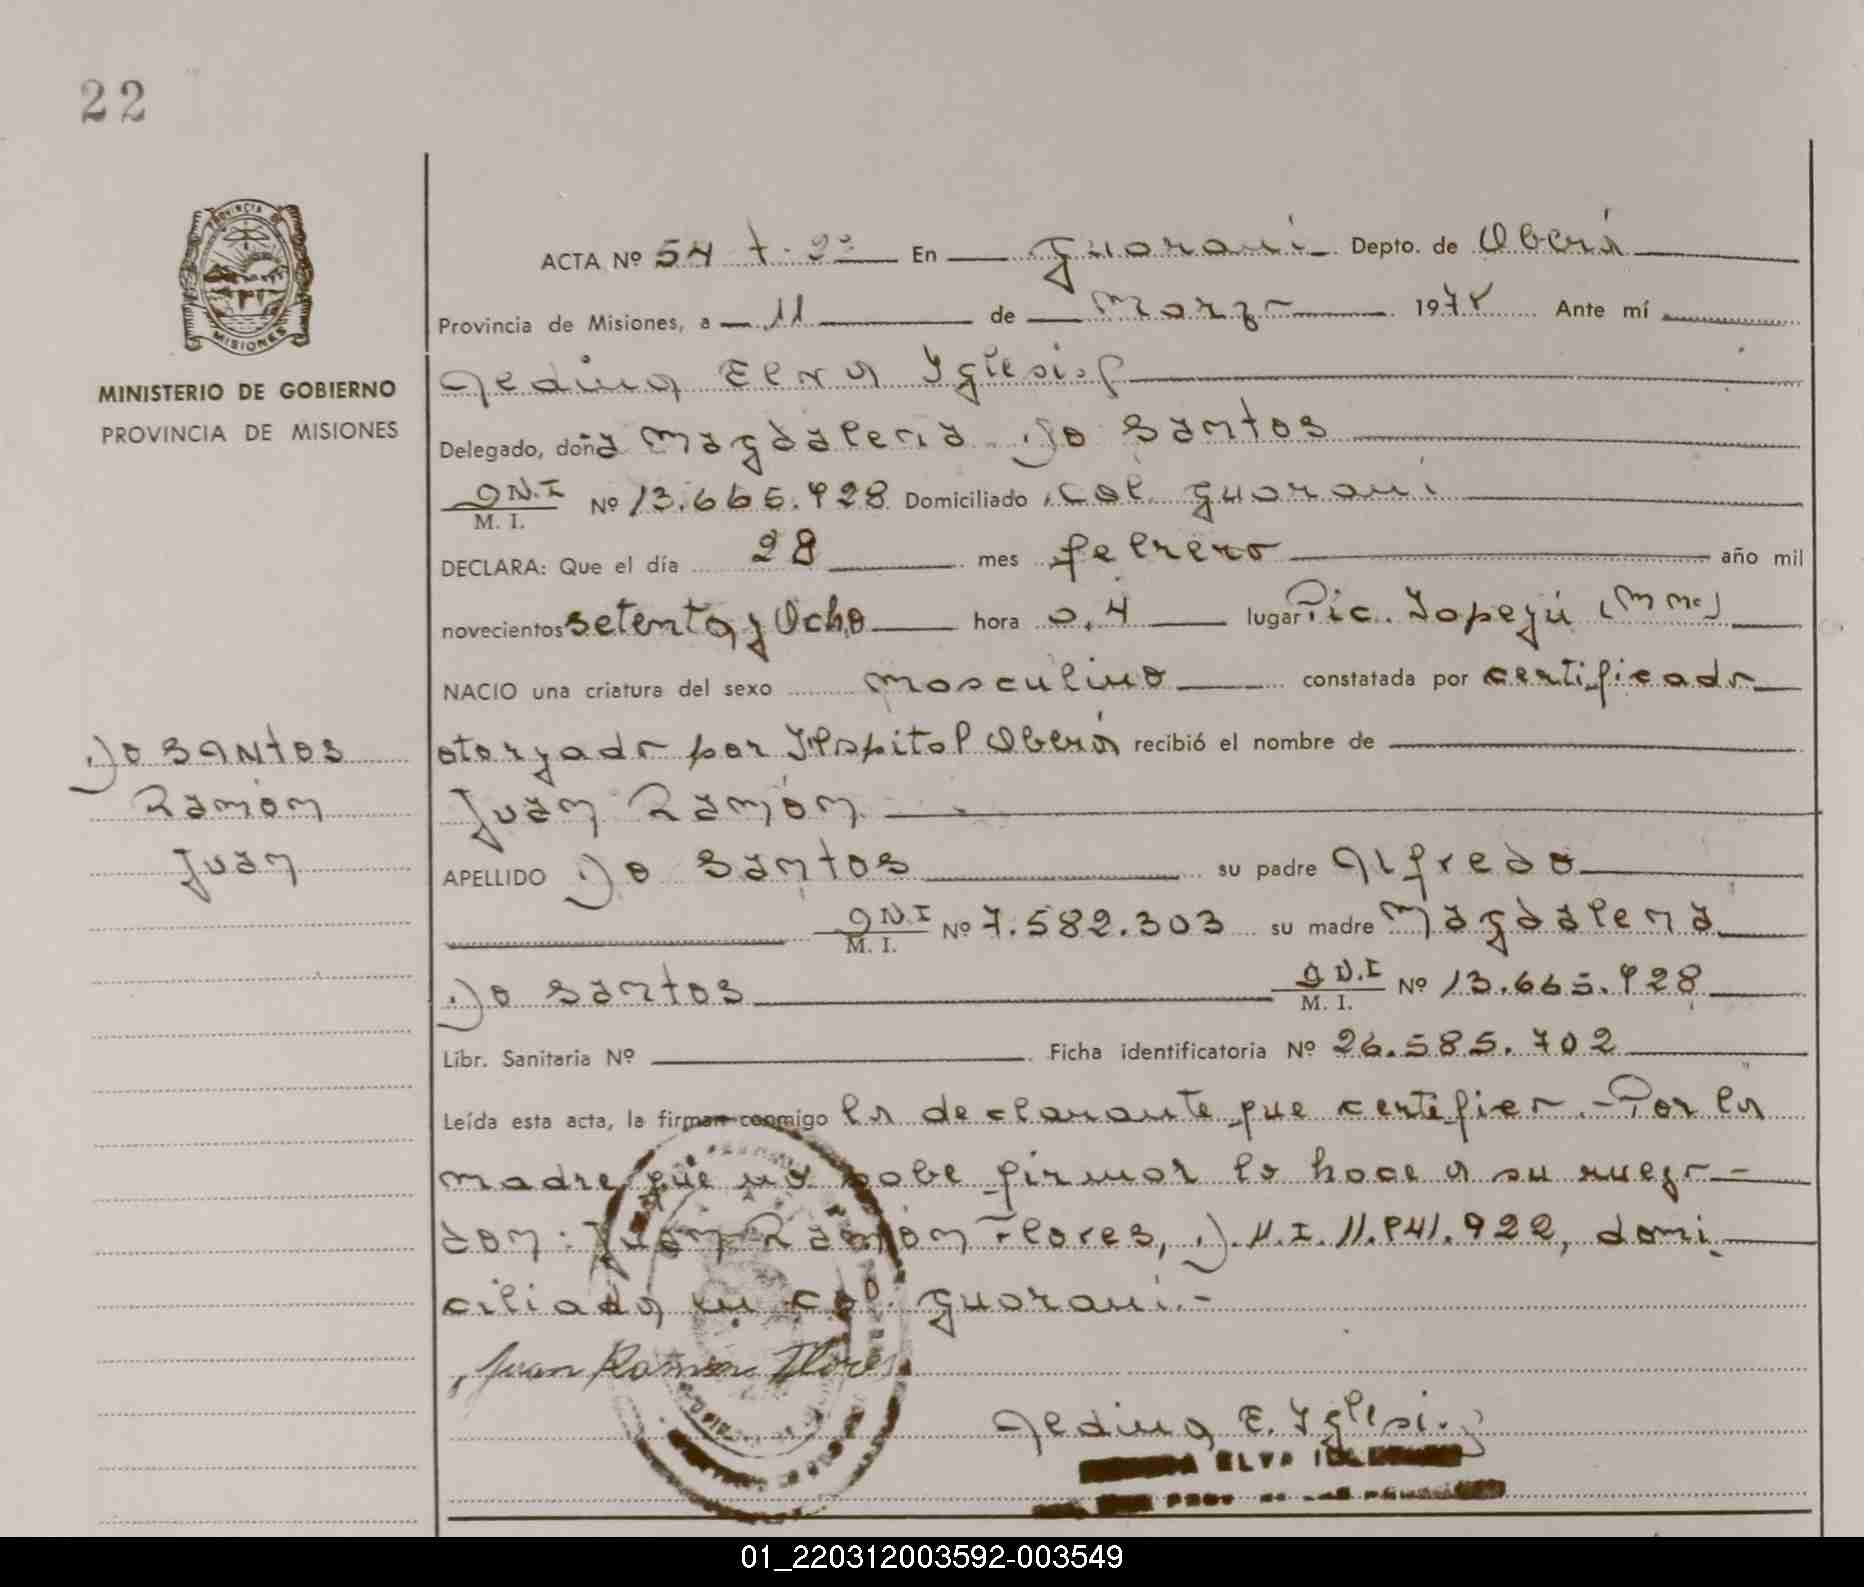 22
MINISTERIO DE GOBIERNO
PROVINCIA DE MISIONES
PROVINCIA DE
MISIONES
Do SANtos
Ramón
Juan
ACTA Nº 54 t. 2º En Guaraní Depto. de Oberá
Provincia de Misiones, a 11 de Marzo 1978 Ante mí
Elva Iglesias
Delegado, doña Magdalena Do Santos
D N.I M. I. Nº 13.665.928 Domiciliado Col. Guaraní
DECLARA: Que el día 28 mes febrero año mil
novecientos setenta y Ocho hora 0.4 lugar Pic. Yapeyú (Mnes)
NACIO una criatura del sexo masculino constatada por certificado
otorgado por Hospital Oberá recibió el nombre de
Juan Ramón
APELLIDO Do Santos su padre Alfredo
D N.I M. I. Nº 7.582.303 su madre Magdalena
Do Santos D N.I M. I. Nº 13.665.928
Libr. Sanitaria Nº Ficha identificatoria Nº 26.585.702
Leída esta acta, la firman conmigo la declarante que certifico.- Por la
madre que no sabe firmar lo hace a su ruego
don: Juan Ramón Flores, D.N.I. 11.841.922, domi
ciliado en col. Guaraní.-
Juan Ramón Flores
E. Iglesias
ELVA
01_220312003592-003549